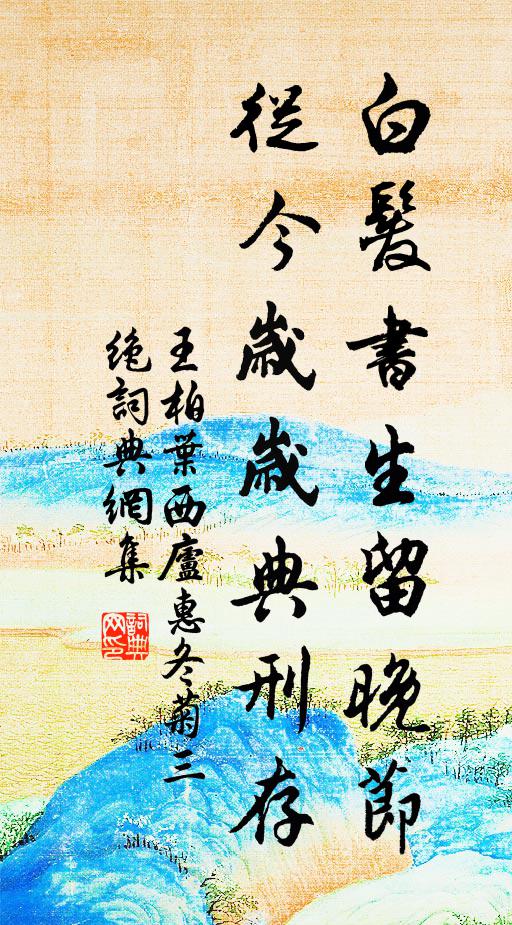 白髮書生留晚節
從今歲歲典刑存
王柏葉西廬惠冬菊三
絕詞典網集
詞典網印